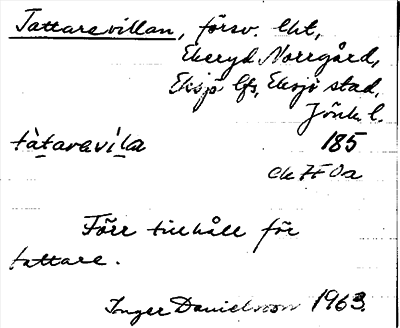 Tattarevillan, försv. lht,
Ekeryd Norrgård,
Eksjö lfs, Eksjö stad,
Jönk. l.
tàtaravíla 185
ck 7F0a
Förr tillhåll för
tattare.
Inger Danielsson 1963.